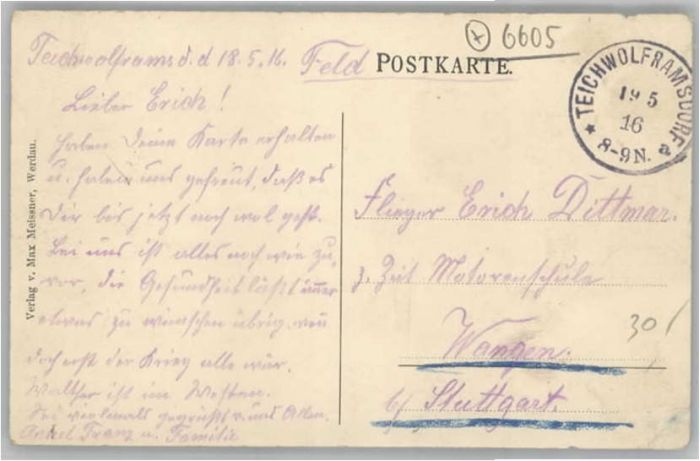 6605
Teichwolframsd. d 18.5.16.
Feld POSTKARTE.
TEICHWOLFRAMSDORF
19 5
16
8-9N. a
Lieber Erich!
Haben Deine Karte erhalten
u. haben uns gefreut, daß es
Dir bis jetzt noch wol geht.
Bei uns ist alles noch wie zu-
vor, die Gesundheit läßt immer
etwas zu wünschen übrig, wen
doch erst der Krieg alle wär.
Walther ist im Westen.
Sei vielmals gegrüßt v. uns Allen.
Onkel Franz u. Familie
Verlag v. Max Meissner, Werdau.
Flieger Erich Dittmar.
z. Zeit Motorenschule
Wangen.
b/ Stuttgart.
30/